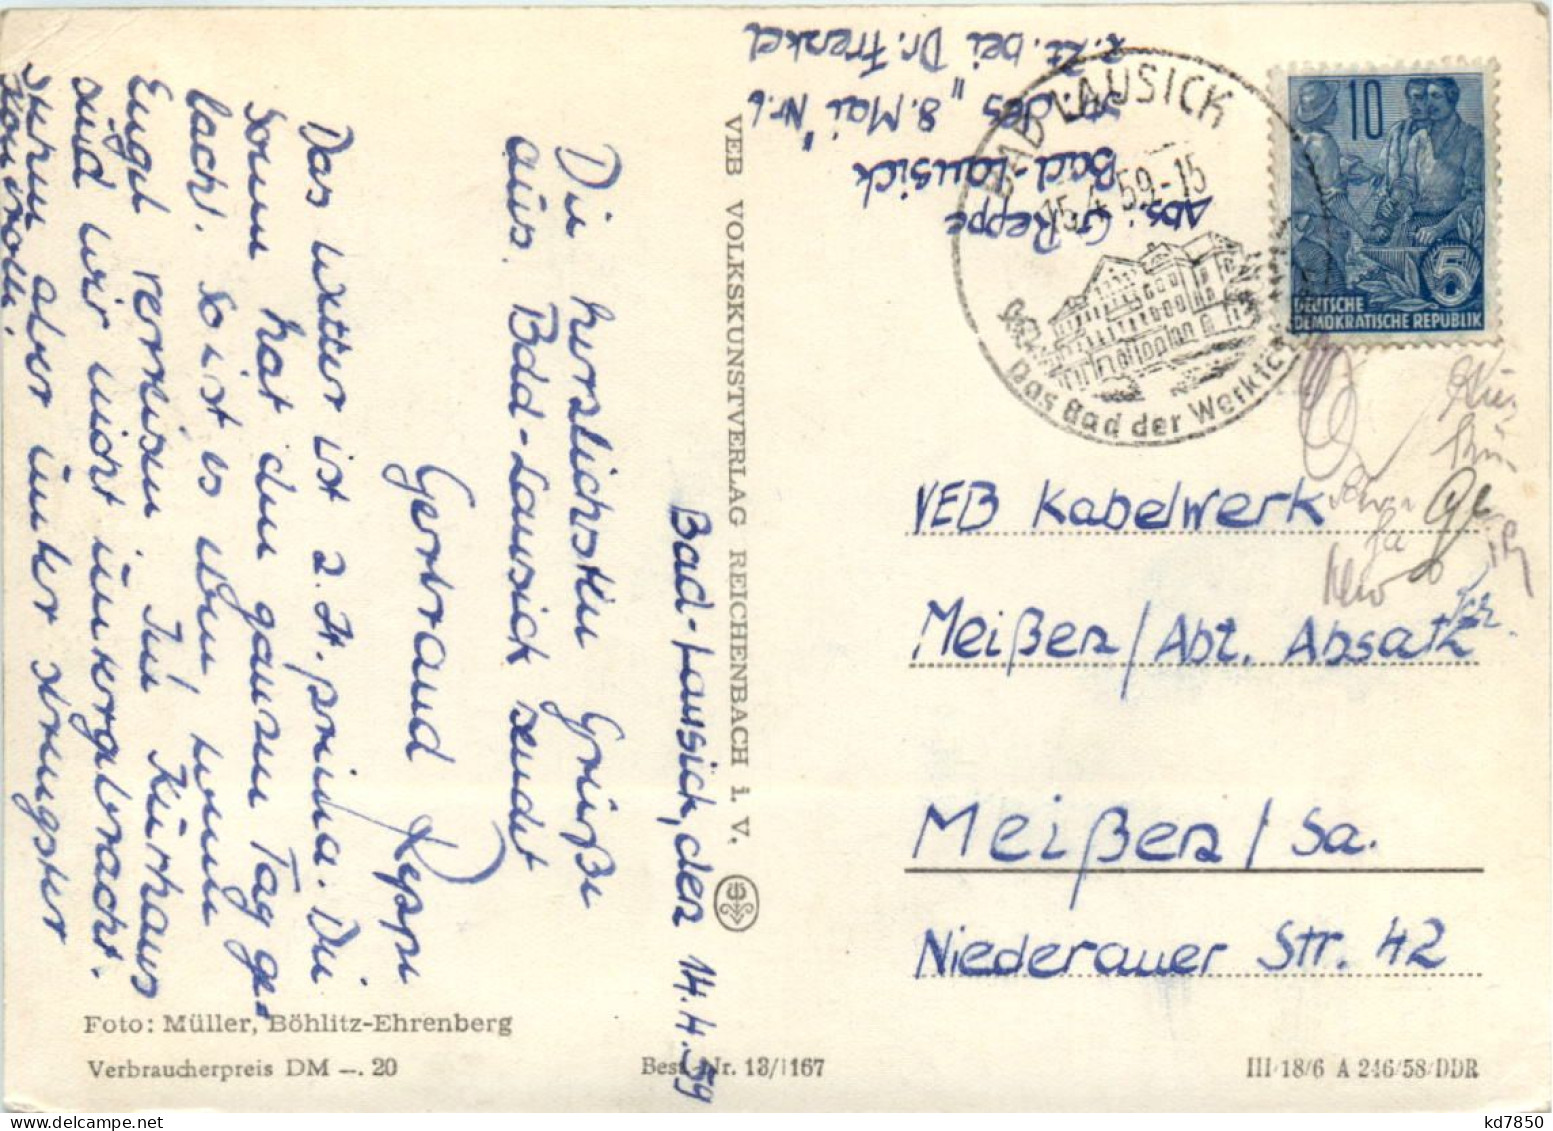 Bad-Lausick, den 14.4.59
Die herzlichsten Grüße
aus Bad-Lausick sendet
Gertraud Reppe
Das Wetter ist z. Zt. prima. Die
Sonne hat den ganzen Tag ge-
lacht. So ist es schon wenn
Engel verreisen. Im Kurhaus
sind wir nicht untergebracht.
stehen aber unter strengster
Kontrolle.
Foto: Müller, Böhlitz-Ehrenberg
Verbraucherpreis DM —. 20
Best.-Nr. 13/1167
VEB VOLKSKUNSTVERLAG REICHENBACH i. V.
Abs. G. Reppe
Bad-Lausick
Str. des „8. Mai" Nr. 6
z. Zt. bei Dr. Frenkel
BAD LAUSICK
15.4.59.-15
Das Bad der Werktätigen
10
5
DEUTSCHE
DEMOKRATISCHE REPUBLIK
VEB Kabelwerk
Meißen/Abt. Absatz
Meißen/Sa.
Niederauer Str. 42
III/18/6 A 246/58/DDR
kd7850